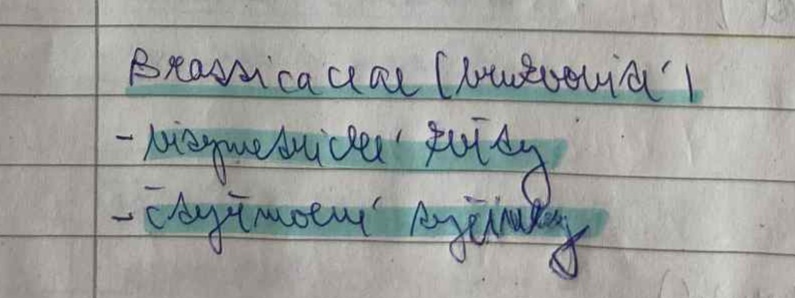 Brassicaceae (brukvovité)
- bisymetrické květy
- čtyřmocné tyčinky